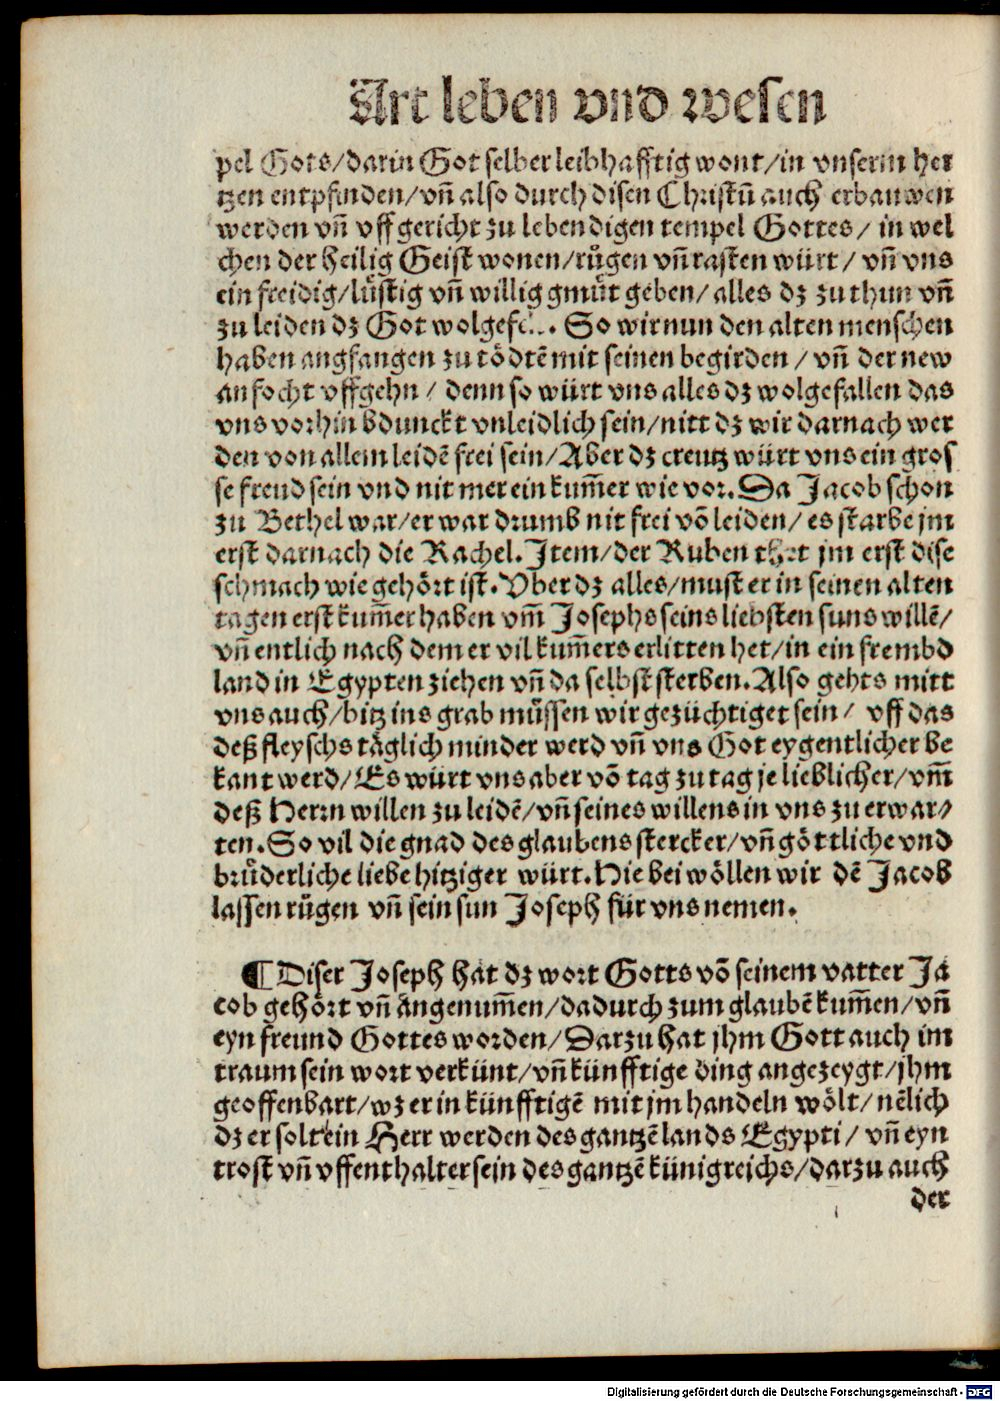 Art leben vnd wesen
pel Gots/darin Got selber leibhafftig wont/in vnserm her
tzen entpfinden/vñ also durch disen Christũ auch erbauwen
werden vñ vffgericht zu lebendigen tempel Gottes/ in wel
chen der heilig Geist wonen/růgen vñ rasten würt/ vñ vns
ein freidig/lüstig vñ willig gmůt geben/ alles dz zu thun vñ
zu leiden dz Got So wir nun den alten menschen
haben angfangen zu tödtẽ mit seinen begirden/ vñ der new
anfocht vffgehn/ denn so würt vns alles dz wolgefallen das
vns vorhin bdunckt vnleidlich sein/nitt dz wir darnach wer
den von allem leidẽ frei sein/Aber dz creutz würt vns ein gros
se freud sein vnd nit mer ein kum̃er wie vor. Da Jacob schon
zu Bethel war/er war drumb nit frei võ leiden/ es starbe jm
erst darnach die Rachel. Item/der Ruben thet jm erst dise
schmach wie gehört ist. Vber dz alles/must er in seinen alten
tagen erst kum̃er haben vm̃ Josephs seins liebsten suns willẽ/
vñ entlich nach dem er vil kum̃ers erlitten het/in ein frembd
land in Egypten ziehen vñ da selbst sterben. Also gehts mitt
vns auch/bitz ins grab můssen wir gezüchtiget sein/ vff das
deß fleyschs täglich minder werd vñ vns Got eygentlicher be
kant werd/Es würt vns aber võ tag zu tag je lieblicher/vm̃
deß Herrn willen zu leidẽ/vñ seines willens in vns zu erwar⸗
ten. So vil die gnad des glaubens stercker/vñ göttliche vnd
brůderliche liebe hitziger würt. Hie bei wöllen wir dẽ Jacob
lassen růgen vñ sein sun Joseph für vns nemen.
¶ Diser Joseph hat dz wort Gotts võ seinem vatter Ja
cob gehört vñ angenum̃en/dadurch zum glaubẽ kum̃en/vñ
eyn freund Gottes worden/Darzu hat jhm Gott auch im
traum sein wort verkünt/vñ künfftige ding angezeygt/jhm
geoffenbart/wz er in künfftigẽ mit jm handeln wölt/nẽlich
dz er solt ein Herr werden des gantzẽ lands Egypti/ vñ eyn
trost vñ vffenthalter sein des gantzẽ künigreichs/darzu auch
der
Digitalisierung gefördert durch die Deutsche Forschungsgemeinschaft - DFG